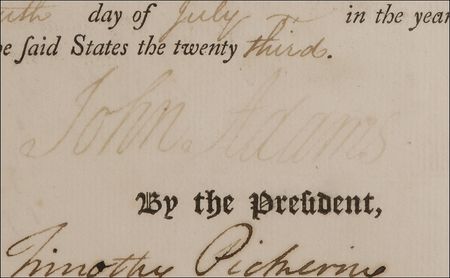 day of July in the year
said States the twenty third.
John Adams
By the Preſident,
Timothy Pickering